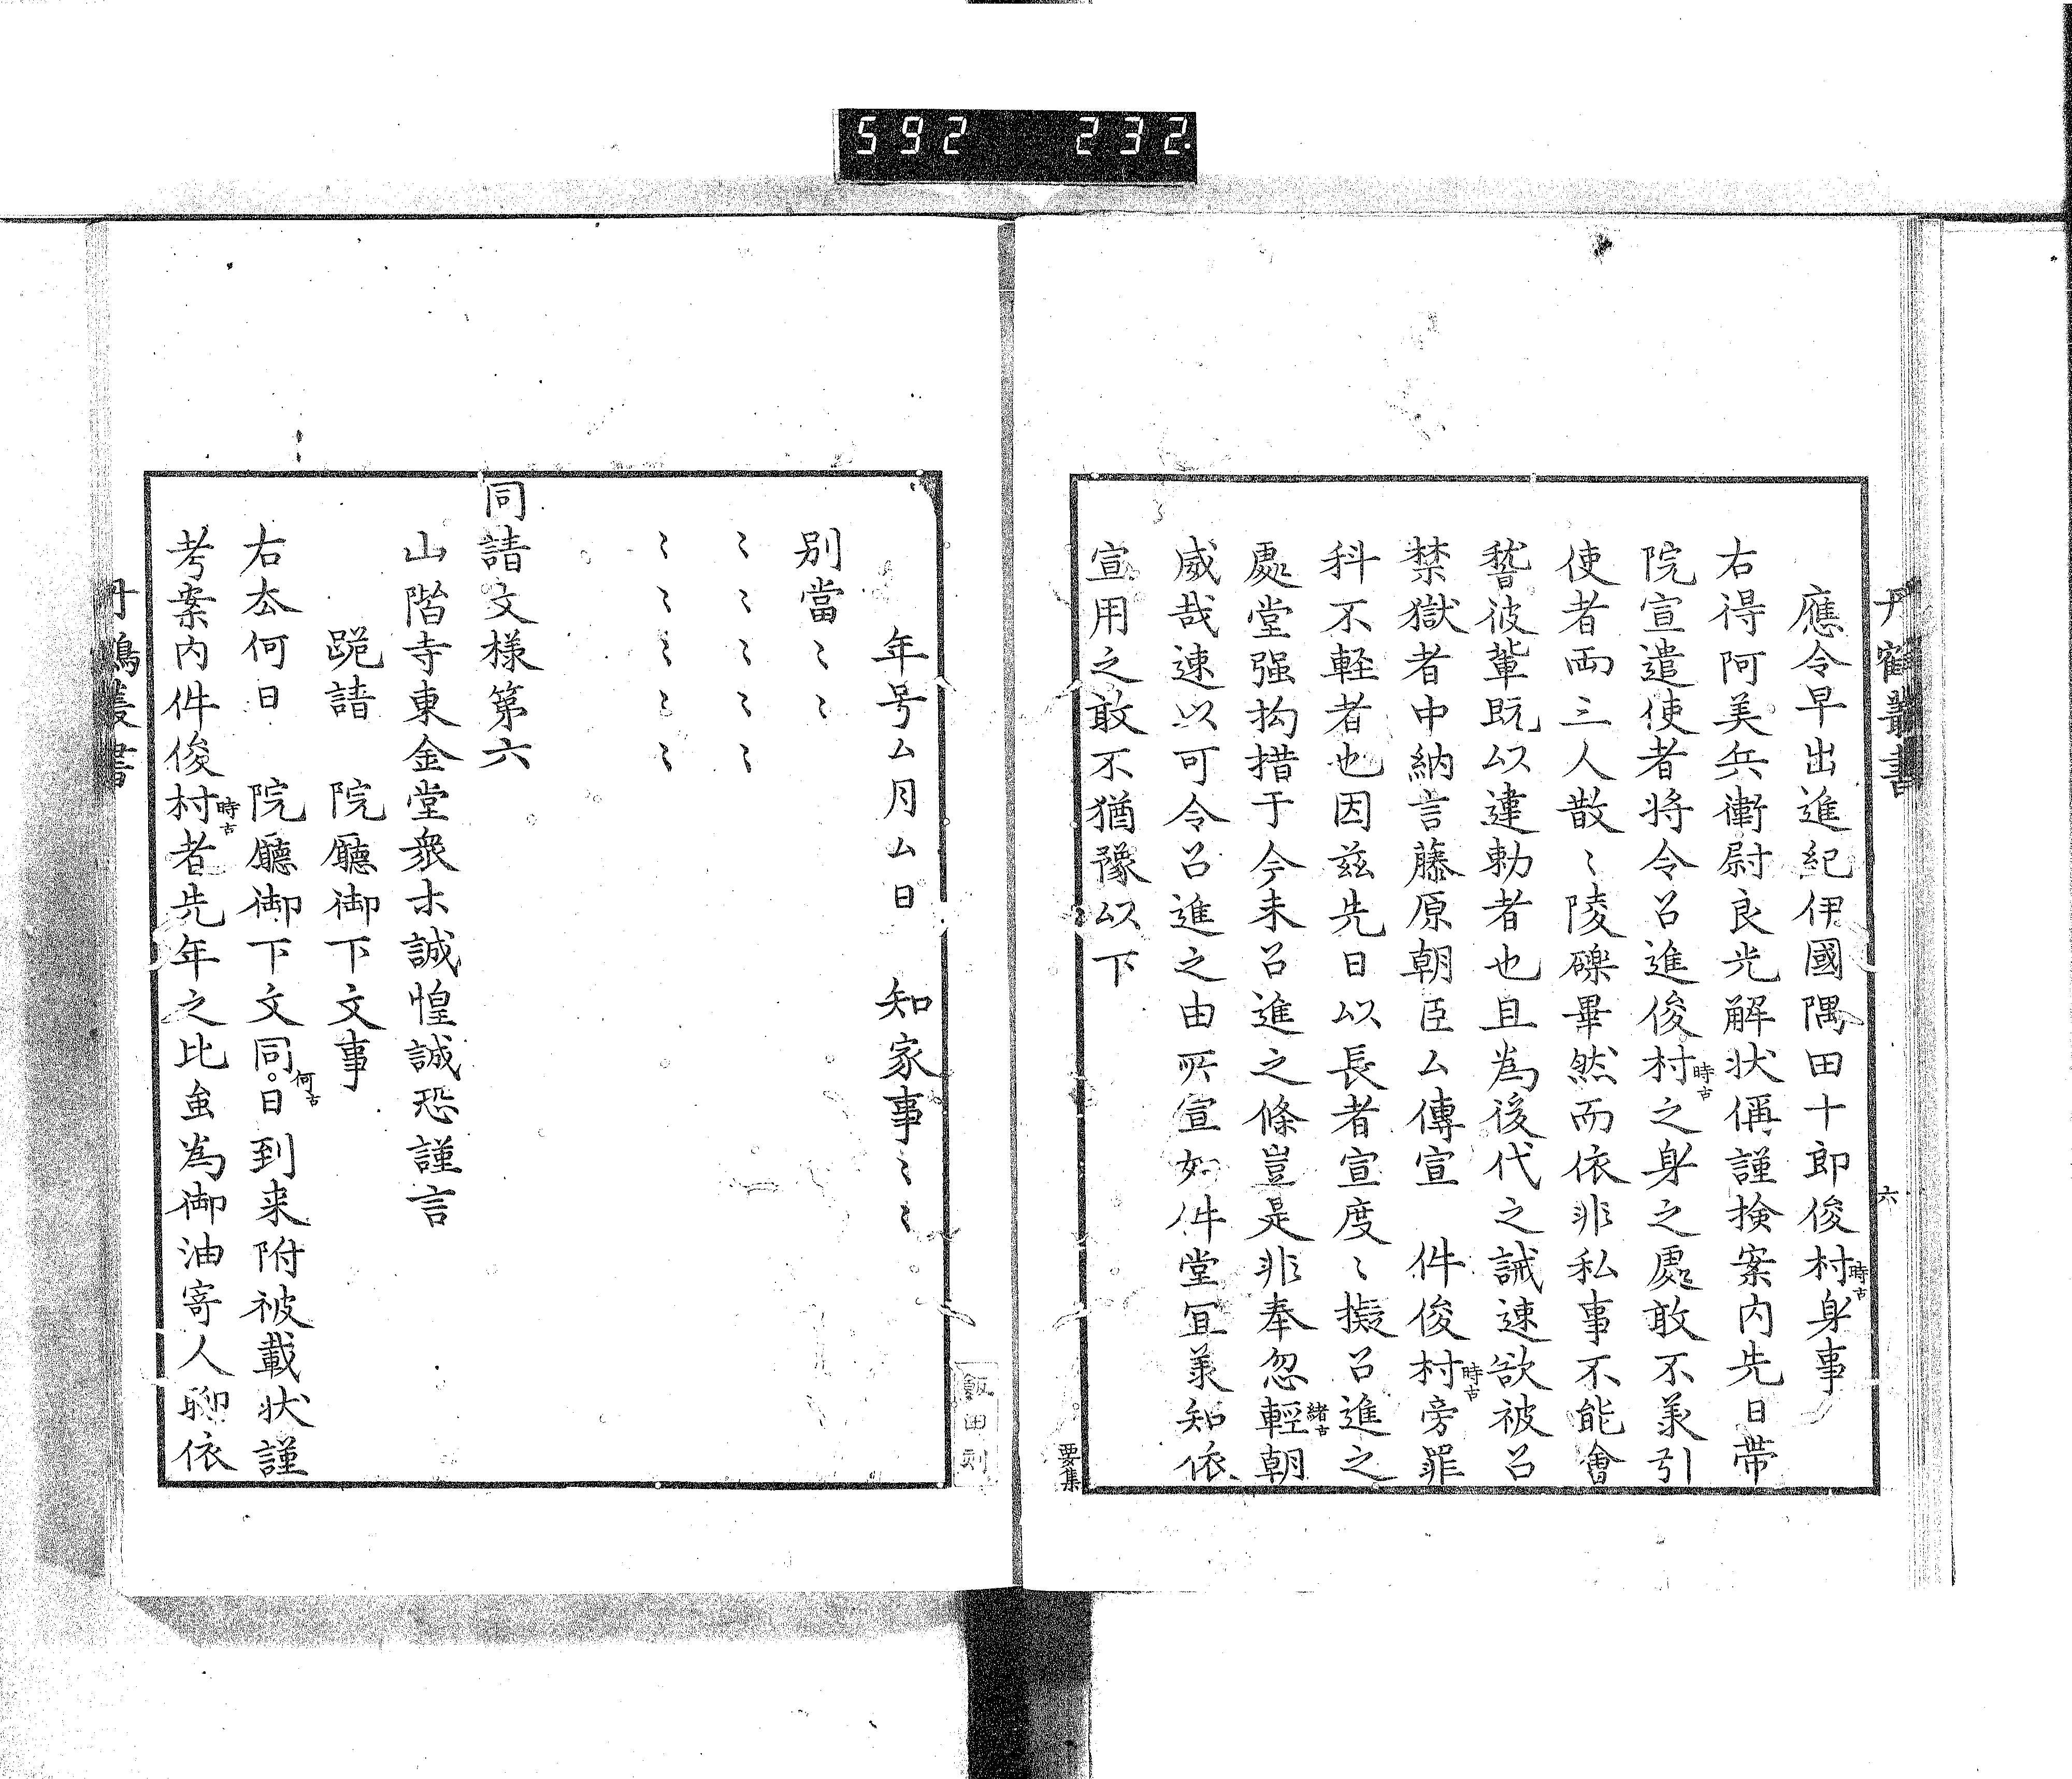 592 232
丹鶴叢書 六
應令早出進紀伊國隅田十郎俊村時古身事
右得阿美兵衛尉良光解状偁謹検案内先日帯
院宣遣使者将令召進俊村時古之身之處敢不羕引
使者両三人散〻陵礫畢然而依非私事不能會
稽彼輩既以違勅者也且為後代之誡速欲被召
禁獄者中納言藤原朝臣ム傳宣 件俊村時古旁罪
科不軽者也因茲先日以長者宣度〻擬召進之
處堂强拘措于今未召進之條豈是非奉忽諸古輕朝
威哉速以可令召進之由所宣如件堂冝羕知依
宣用之敢不猶豫以下
要集
年号ム月ム日 知家事〻〻
別當〻〻
〻〻〻〻
〻〻〻〻
同請文様第六
山階寺東金堂衆ホ誠惶誠恐謹言
跪請 院廳御下文事
右厺何日 院廳御下文同。何古日到来附被載状謹
考案内件俊村時古者先年之比𧈧為御油寄人聊依
飯田刻
丹鶴叢書